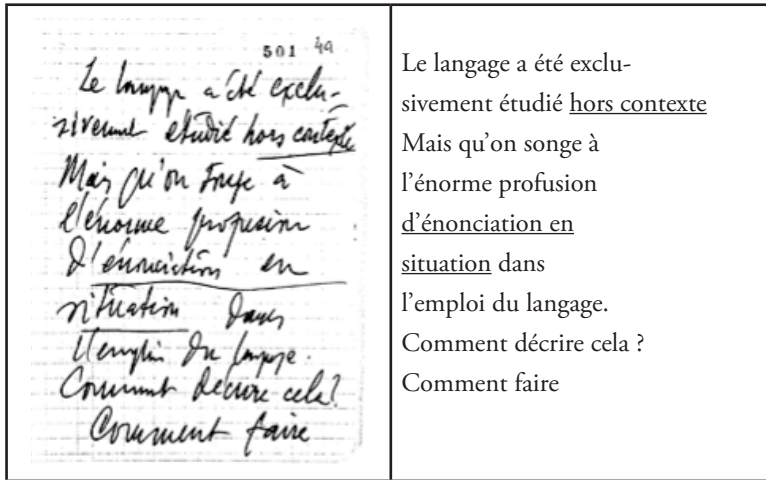 501 49
Le langage a été exclu-
sivement étudié hors contexte
Mais qu'on songe à
l'énorme profusion
d'énonciation en
situation dans
l'emploi du langage.
Comment décrire cela ?
Comment faire
Le langage a été exclu-
sivement étudié hors contexte
Mais qu'on songe à
l'énorme profusion
d'énonciation en
situation dans
l'emploi du langage.
Comment décrire cela ?
Comment faire